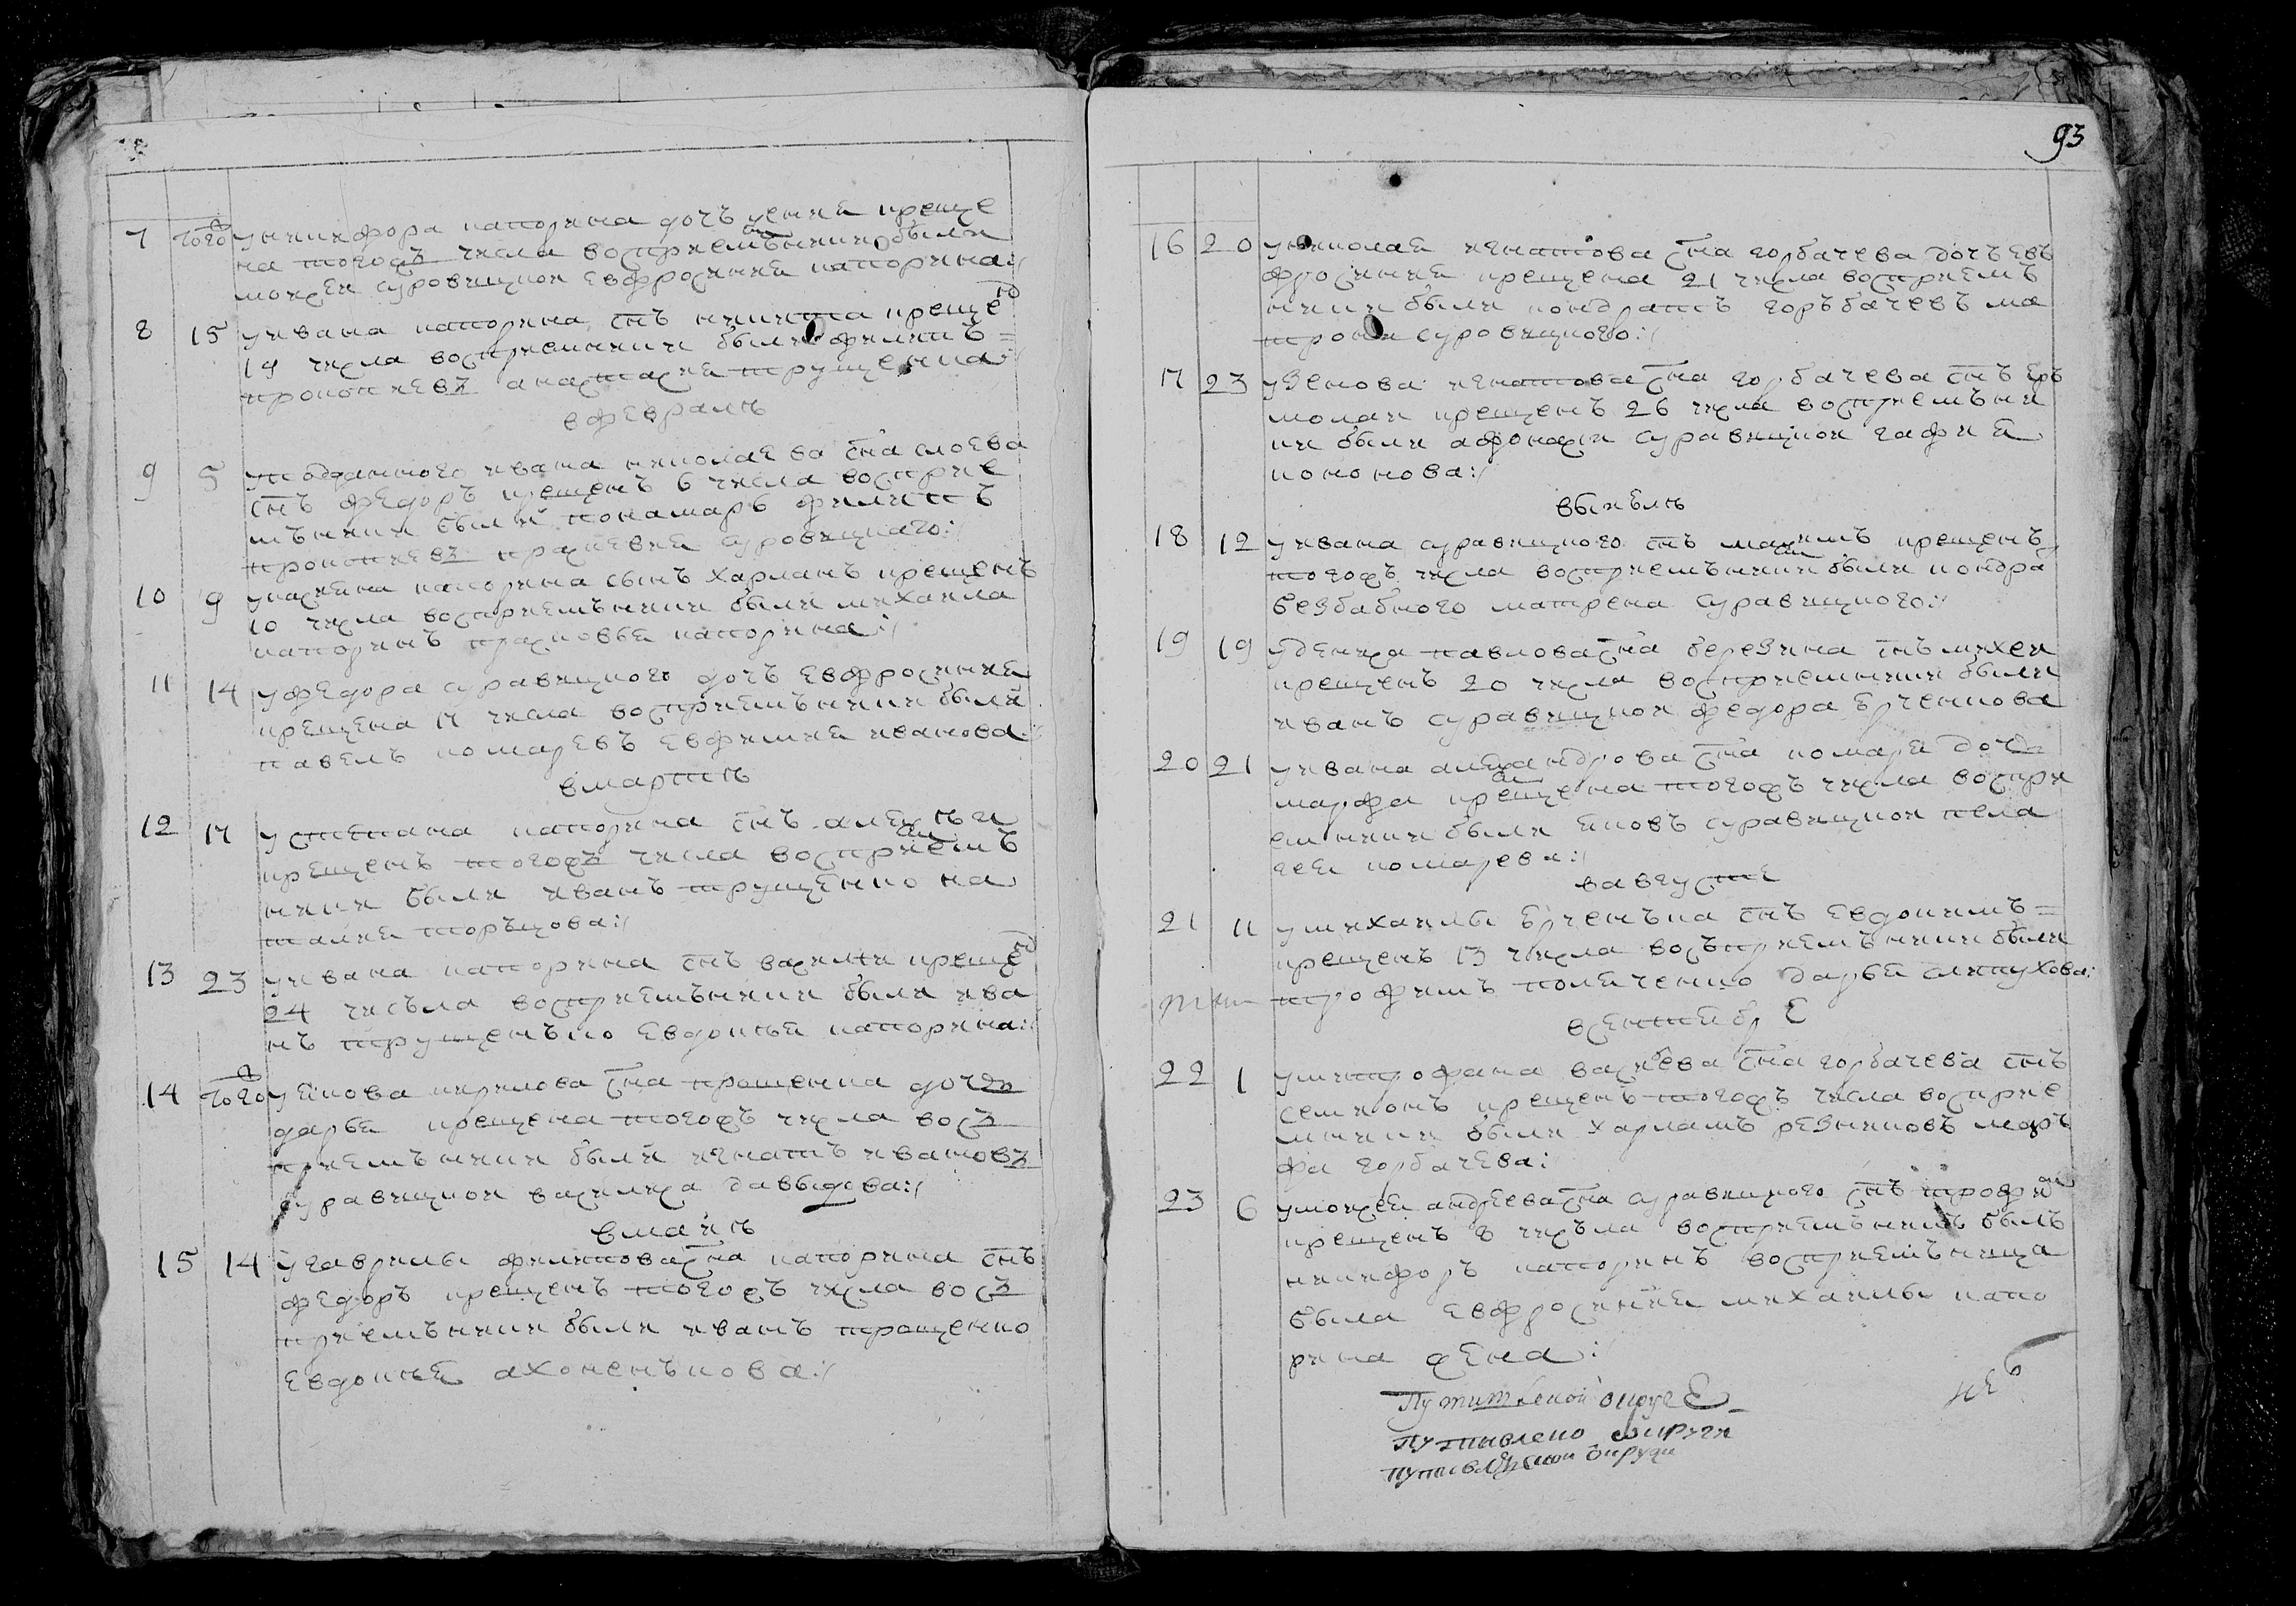 7 того у никифора капорина дочъ ксения креще
на тогожъ числа восприемъники были
моисеи суровицкои евфросиния капорина:/
8 15 у ивана капорина снъ никита креще
19 числа восприемники были филипъ=
прокопиевъ анастасия трущенка:/
в феврале
9 5 у подданного ивана николаева сна слоева
снъ федоръ крещенъ 6 числа восприе
мъники были понамарь филипъ
прокопиевъ праскевия суровицкаго:/
10 9 капорина сынъ харланъ крещенъ
10 числа восприемъники были михаила
капоринъ прасковья капорина:/
11 14 у федора суравицкого дочъ евфросиния
крещена 17 числа восприемъники были
павелъ комаревъ евфимия иванова:/
в марте
12 17 у степана капорина снъ алексеи
крещенъ тогожъ числа восприемъ
ники были иванъ трущенко на
талия торъцова:/
13 23 у ивана капорина снъ василеи креще
24 чисъла восприемъники были ива
нъ трущенъко евдокия капорина:/
14 того у якова кирилова сна прощенка дочъ
дарья крещена тогожъ числа восъ
приемъники были игнатъ ивановъ
суравицкои василиса давыдова:/
в маие
15 14 у гаврилы филипова сна капорина снъ
федоръ крещенъ тогожъ числа восъ
приемъники были иванъ трощенко
евдокия ахоненъкова:/
93
16 20 у николая игнатова сна горбачева дочъ евъ
фросиния крещена 21 числа восприемъ
ники были кондратъ горъбачевъ ма
трона суровицкого:/
17 23 у зенова игнатова сна горбачева снъ еръ
молаи крещенъ 26 числа восприемъни
ки были афонасии суравицкои гафия
кононова:/
в июле
18 12 у ивана суравицкого снъ максимъ крещенъ
тогожъ числа восприемъники были кондра
безбабного матрена суравицкого:/
19 19 у дениса павлова сна березина снъ мисеи
крещенъ 20 числа восприемники были
иванъ суравицкои федора ерченкова
20 21 у ивана александрова сна комаря дочъ
марфа крещена тогожъ числа воспри
емники были яковъ суравицкои пела
гея комарева:/
в августе
21 11 у михаилы ерченъка снъ евдокимъ=
крещенъ 13 числа восъприемъники были
трофимъ поличенко дарья слепухова:
в сентябре
22 1 у митрофана васильева сна горбачева снъ
семионъ крещенъ тогожъ числа восприе
мники были харламъ резниковъ маръ
фа горбачева:/
23 6 у моисея андреева сна суравицкого снъ трофи
крещенъ 8 чисъла восприемъникъ былъ
никифоръ капоринъ восприемъница
была евфросиния михаилы капо
рина жена:/
Путивлско округи
путивлъской округи